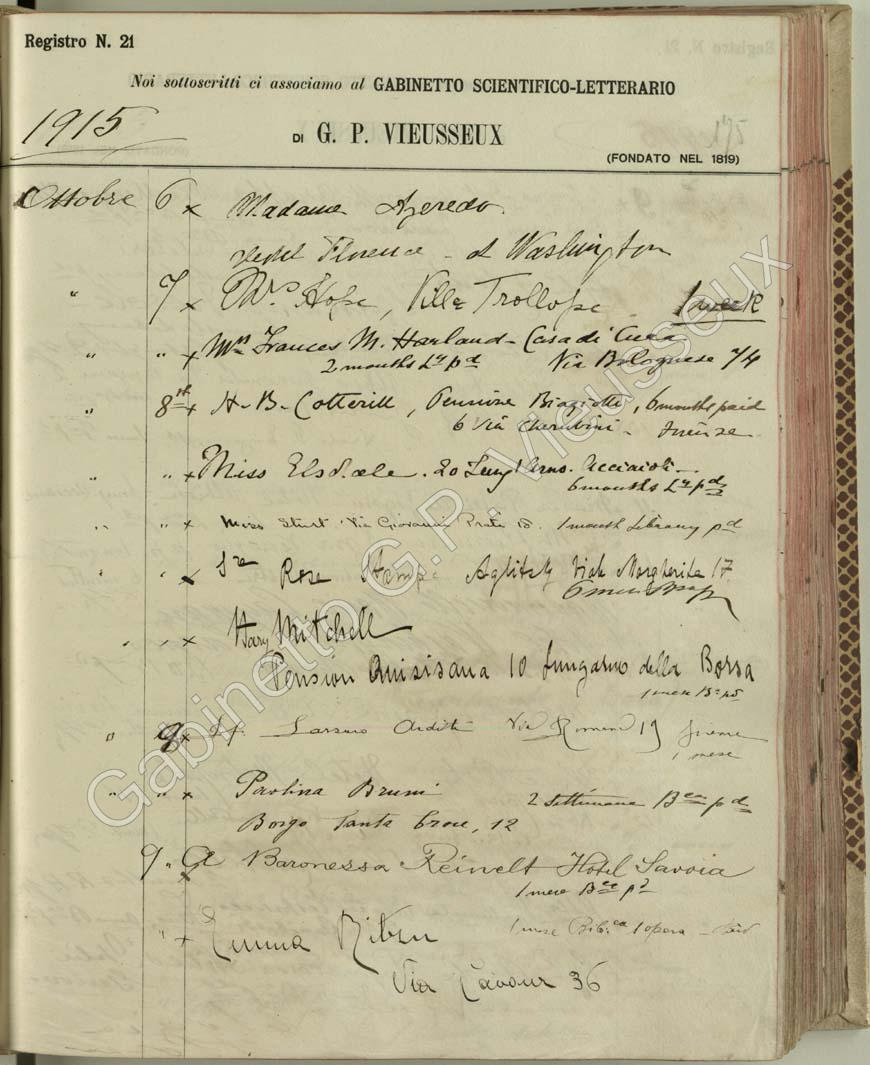 Registro N. 21
Noi sottoscritti ci associamo al GABINETTO SCIENTIFICO-LETTERARIO
1915
DI G. P. VIEUSSEUX
(FONDATO NEL 1819)
Ottobre 6 x Madame Azeredo
Florence - et Washington
" 7 x Mrs Hope, Villa Trollope 1 week
" " x Mrs Frances M. Harland - Casa di Cura
2 months Ly pd Via Bolognese 74
" 8th x H. B. Cotterill, Pensione Biagiotti, 6 months paid
6 Via Cherubini - Firenze
" " x Miss Elsdale. 20 Lung'Arno. Acciaioli -
6 months Ly pd
" " x Miss Sturt Via Giovanni Prati 1 month Library pd
" " x Sra Rose Aglitzky Viale Margherita 17
" " x Mary Mitchell
Pension Quisisana 10 Lungarno della Borsa
1 mese Ba pd
" 9 x Lazzaro Arditi Via Romana 19 Firenze
1 mese
" " x Paolina Bruni 2 settimane Bca pd
Borgo Santa Croce, 12
9 " x Baronessa Reinelt Hotel Savoia
1 mese Bca pd
" x Emma 1 mese Bibca 1 opera -
Via Cavour 36
Gabinetto G.P. Vieusseux